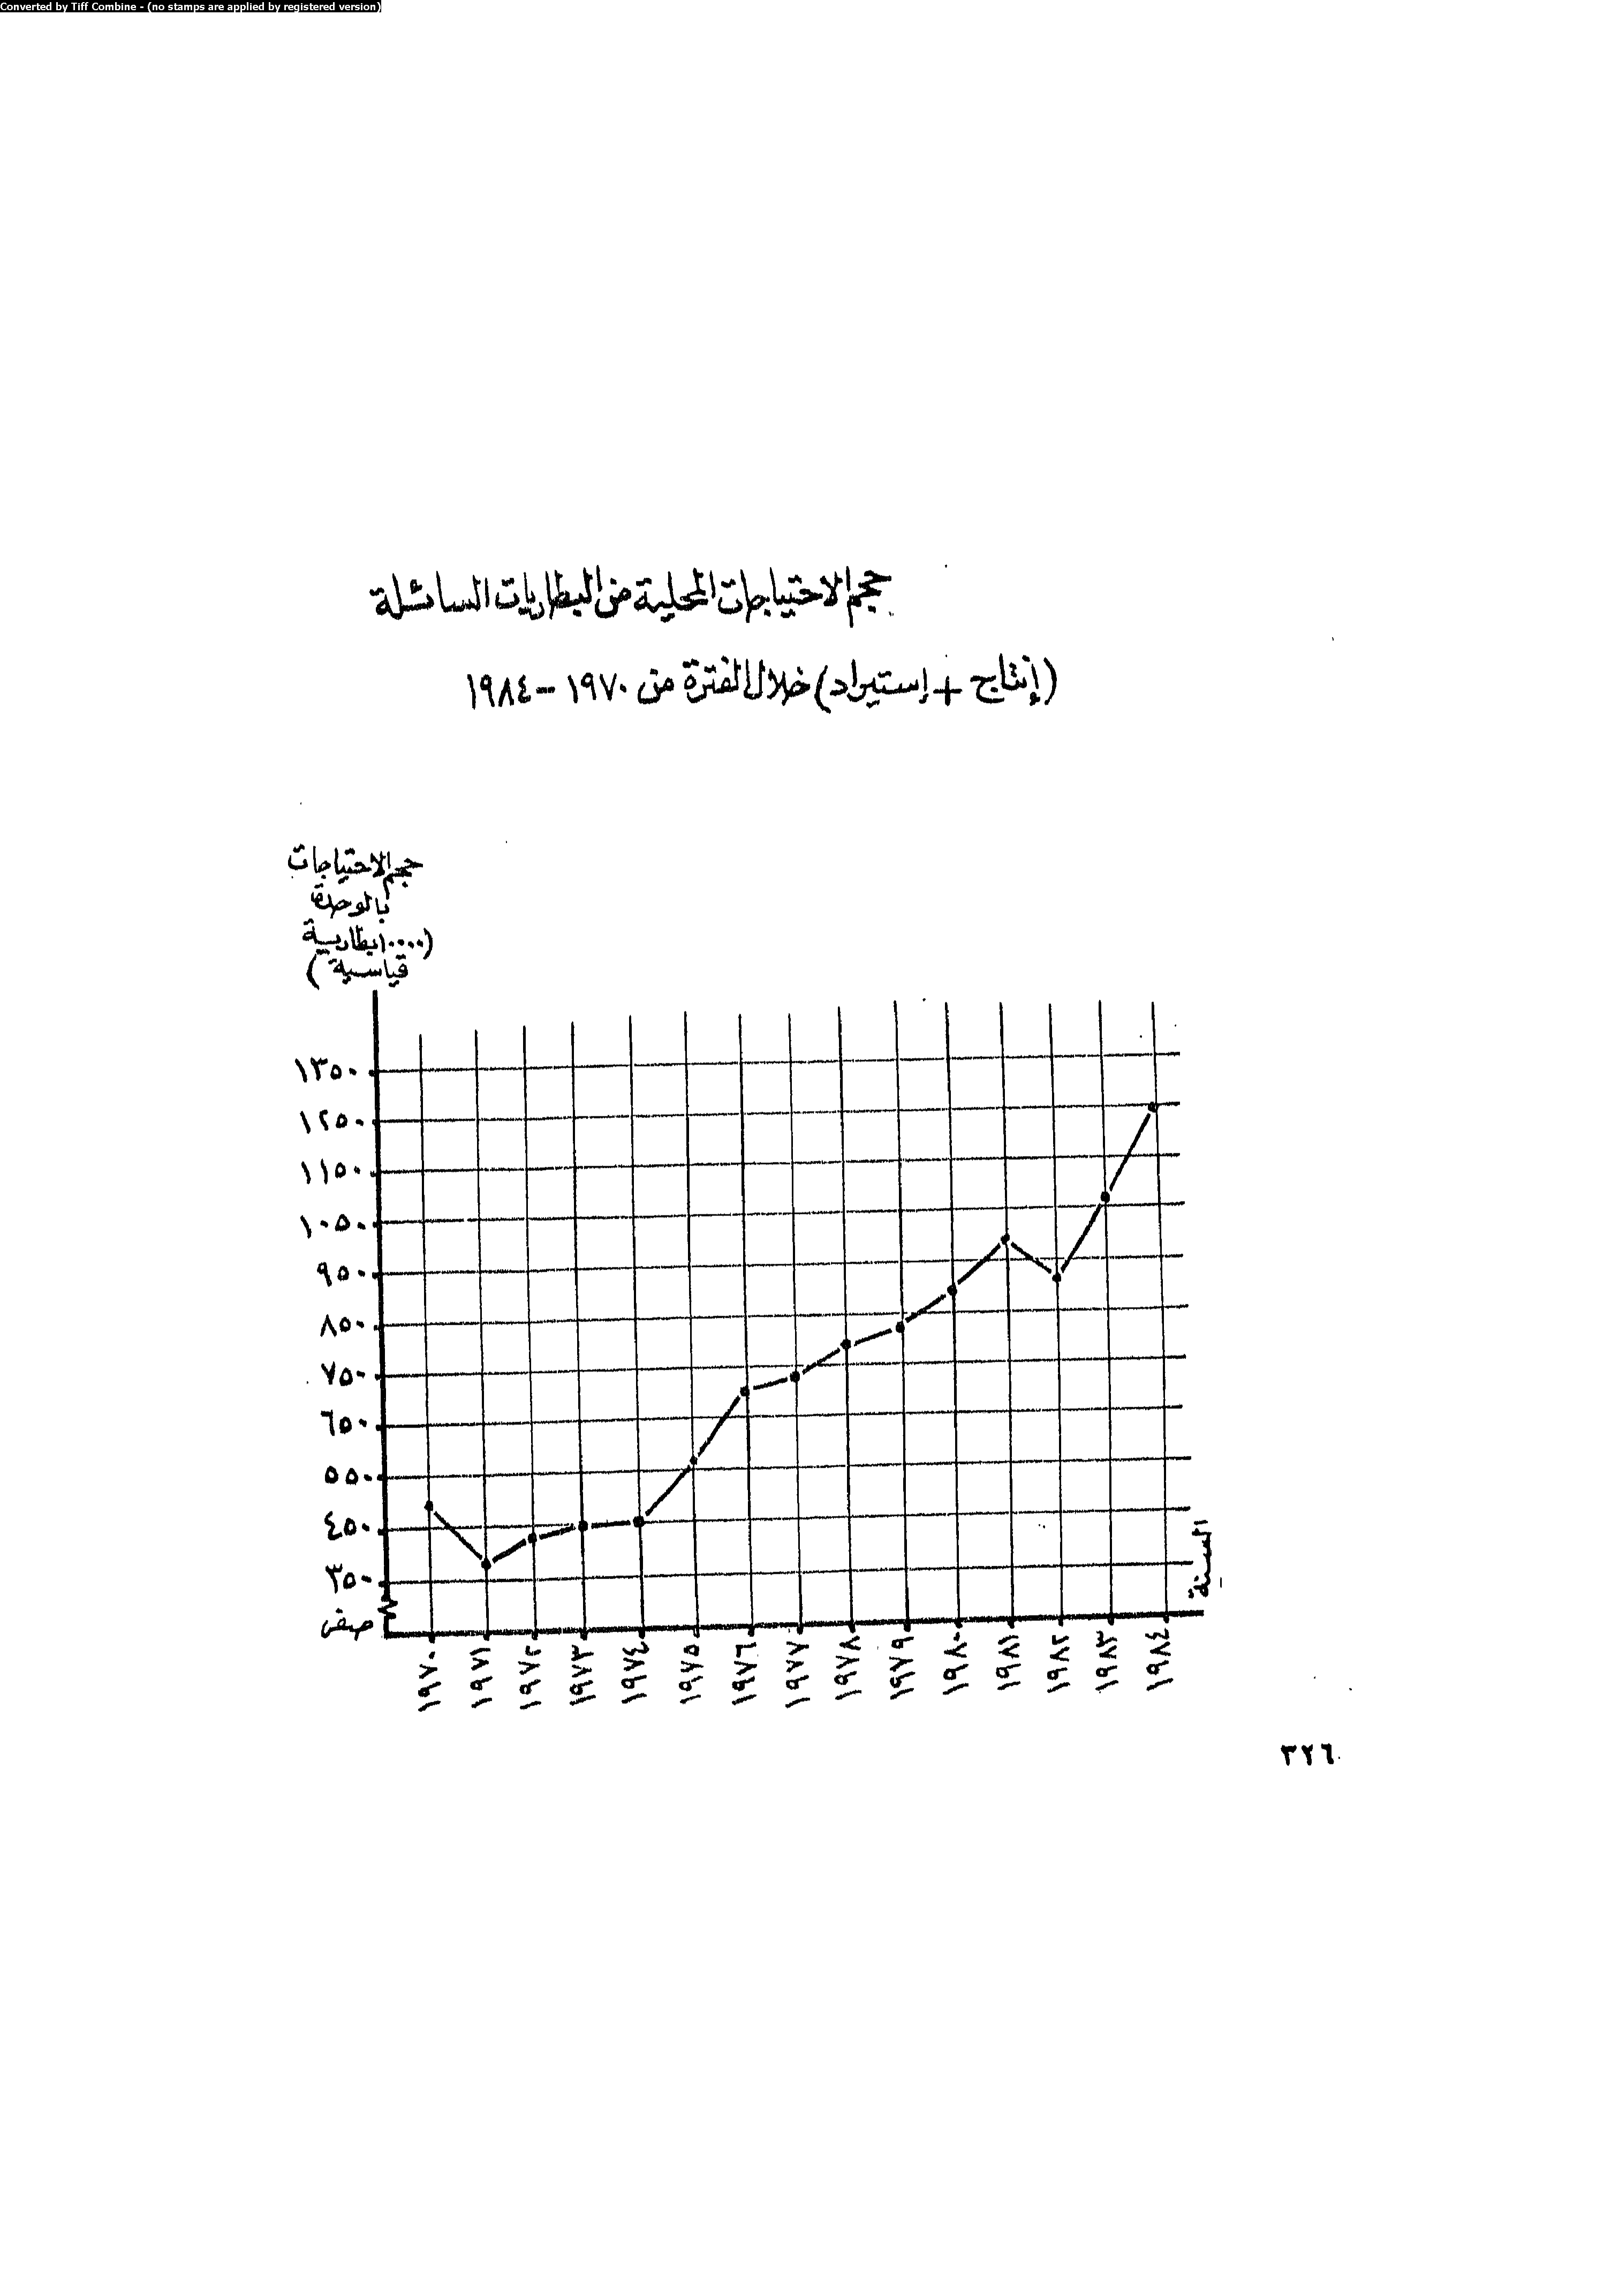 Converted by Tiff Combine - (no stamps are applied by registered version)
حجم الاحتياجات المحلية من البطاريات السائلة
(إنتاج + إستيراد) خلال الفترة من ١٩٧٠ - ١٩٨٤
حجم الاحتياجات
بالوحدة
(١٠٠٠٠ بطارية
قياسية)
١٣٥٠
١٢٥٠
١١٥٠
١٠٥٠
٩٥٠
٨٥٠
٧٥٠
٦٥٠
٥٥٠
٤٥٠
٣٥٠
صفر
السنة
١٩٧٠
١٩٧١
١٩٧٢
١٩٧٣
١٩٧٤
١٩٧٥
١٩٧٦
١٩٧٧
١٩٧٨
١٩٧٩
١٩٨٠
١٩٨١
١٩٨٢
١٩٨٣
١٩٨٤
٣٢٦